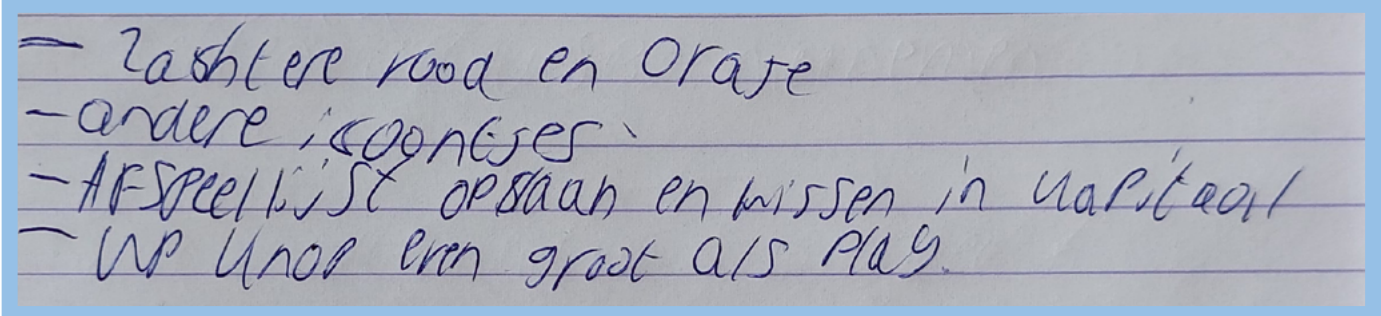 - Zachtere rood en Oraje
- andere icoontjes
- Afspeellijst opslaan en wissen in kapitaal
- UP knop even groot als Play.